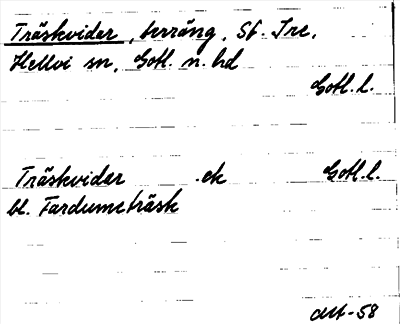 Träskvider, terräng, St. Ire,
Hellvi sn, Gotl. n. hd
Gotl. l.
Träskvider ek Gotl. l.
bl. Fardumeträsk
-58